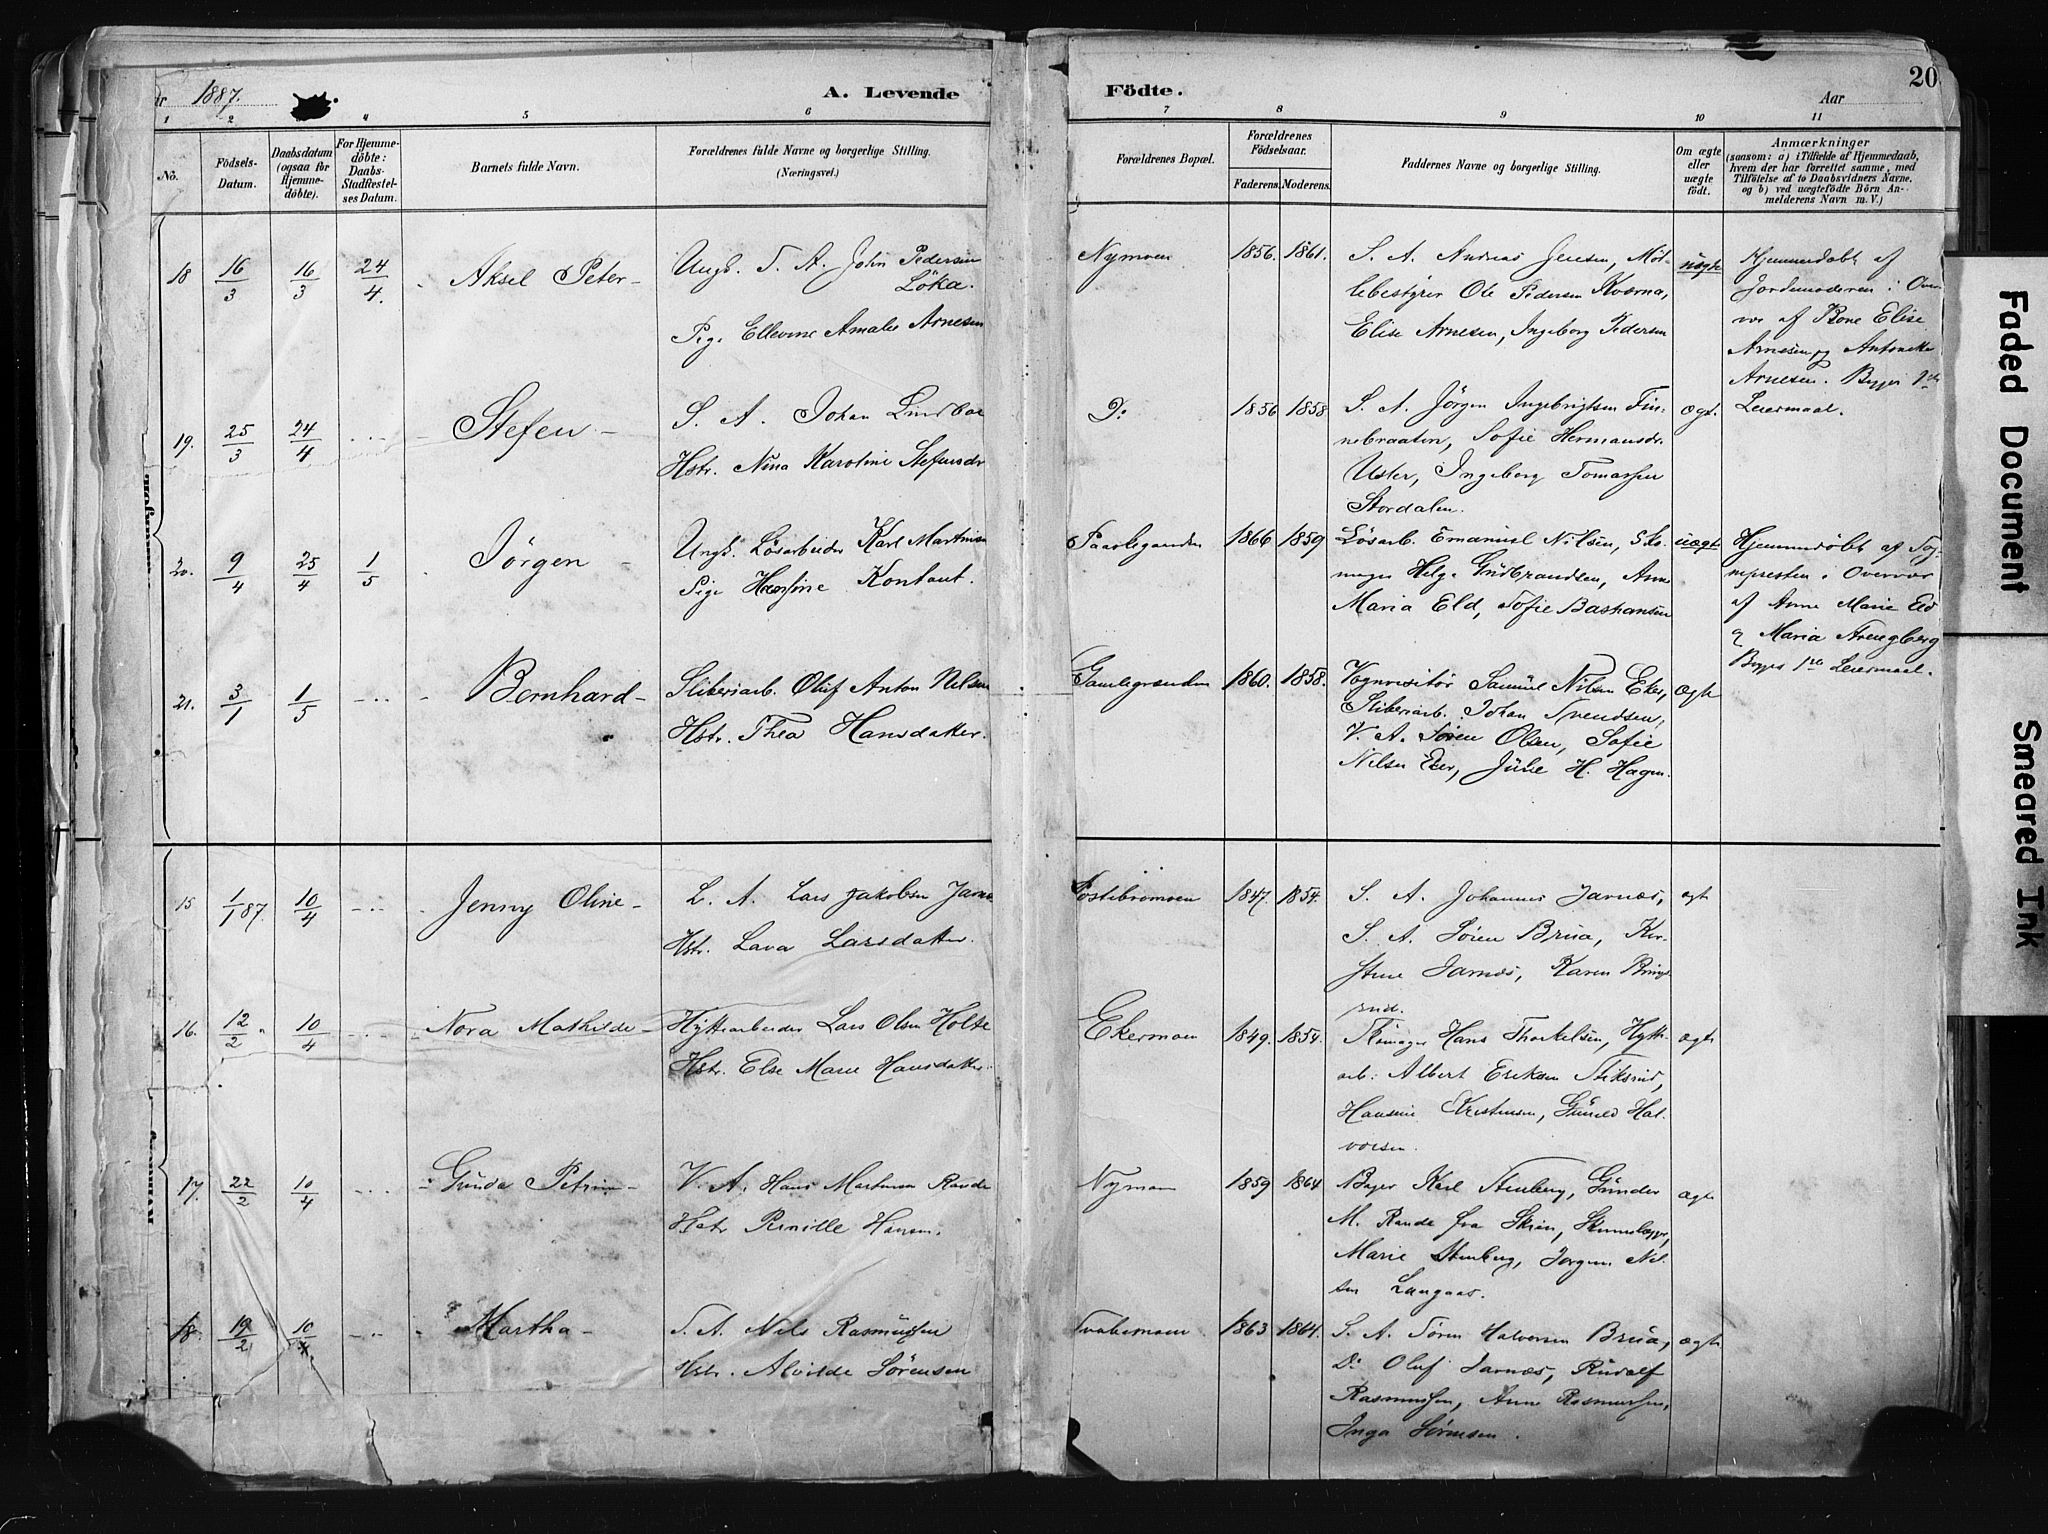 1887.
A. Levende
Födte.
20
Aar
1 2 4 5 6 7 8 9 10 11
No.
Födsels-Datum.
Daabsdatum (ogsaa for Hjemmedöbte).
For Hjemmedöbte: Daabs-Stadfæstelses Datum.
Barnets fulde Navn.
Forældrenes fulde Navne og borgerlige Stilling. (Næringsvei.)
Forældrenes Bopæl.
Forældrenes Födselsaar.
Faderens. Moderens.
Faddernes Navne og borgerlige Stilling.
Om ægte eller uægte födt.
Anmærkninger
(saasom: a) i Tilfælde af Hjemmedaab,
hvem der har forrettet samme, med
Tilföielse af to Daabsvidners Navne.
og b) ved uægtefödte Börn An-
melderens Navn m. V.)
18 16/3 16/3 24/4. Aksel Peter
Ungk. S. A. John Pedersen
Löka.
Pige Ellevine Amalie Arnesen
Nymoen 1856. 1861.
S. A. Andreas Jensen, Möl-
lebestyrer Ole Pedersen Kværna,
Elise Arnesen, Ingeborg Pedersen
uægte
Hjemmedöbt af
Jordemoderen i Over-
vær af Kone Elise
Arnesen og Antonette
Arnesen. Begges 1ste
Leiermaal.
19. 25/3 24/4 Stefen
S. A. Johan Lindboe
Hstr. Nina Karoline Stefensdr
Do 1856 1858
S. A. Jörgen Ingebrigtsen Fin-
nebraaten, Sofie Hermansdr.
Uster, Ingeborg Tomassen
Stordalen.
ægt.
20. 9/4 25/4 1/5 Jörgen
Ungk. Lösarbeider Karl Martinsen
Pige Hansine Kontant.
1866 1859
Lösarb. Emanuel Nilsen, Sko-
mager Helge Gudbrandsen, Anne
Maria Eld, Sofie Bashansen
uægte
Hjemmedöbt af Sog-
nepresten i Overvær
af Anne Marie Eld
og Maria Strengberg
Begges 1ste Leiermaal.
21. 3/1 1/5 Bernhard
Sliberiarb. Oluf Anton Nilsen
Hstr. Thea Hansdatter.
Gamlegrænden 1860. 1858.
Vognvisitör Samuel Nilsen Eker,
Sliberiarb. Johan Svendsen,
V. A. Sören Olsen, Sofie
Nilsen Eker, Julie H. Hagen
ægte
15 1/1 87. 10/4 Jenny Oline
L. A. Lars Jakobsen Jarnæs
Hstr. Lava Larsdatter.
Fostibromoen 1847. 1854.
S. A. Johannes Jarnæs,
S. A. Sören Brua, Kir-
stine Jarnæs, Karen Brings-
rud.
ægte
16. 12/2 10/4 Nora Mathilde
Hyttearbeider Lars Olsen Holte
Hstr. Else Marie Hansdatter.
Ekermoen 1849. 1854.
Skomager Hans Thorkelsen, Hytte-
arb. Albert Eriksen Stiksrud,
Hansine Kristensen, Gunild Hal-
vorsen.
ægte
17. 22/2 10/4 Gunda Petrine
V. A. Hans Martinsen Rande
Hstr Pernille Hansen.
Nymoen 1859 1864
Bager Karl Stenberg, Gunder
M. Rande fra Skien,
Marie Stenberg, Jörgen Nil-
sen Langaas.
ægte
18. 19/2 10/4 Martha
S. A. Nils Rasmussen
Hstr. Alvilde Sörensen
Svabemoen 1863 1864.
S. A. Sören Halvorsen Brua,
Do Oluf Jarnæs, Rudolf
Rasmussen, Anne Rasmussen,
Inga Sörensen.
ægte
Faded Document
Smeared Ink